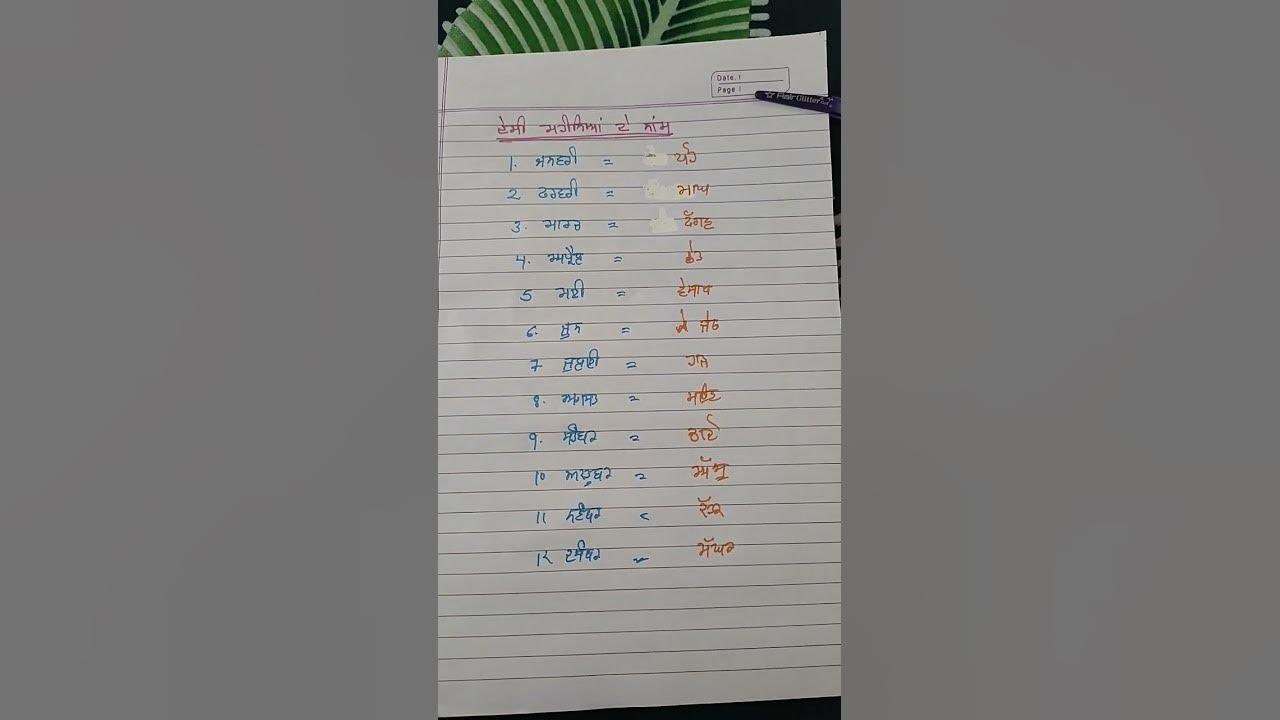 Date. I
Page I
Flair Glitter
ਦੇਸੀ ਮਹੀਨਿਆਂ ਦੇ ਨਾਂਮ
1. ਜਨਵਰੀ = ਪੋਹ
2 ਫਰਵਰੀ = ਮਾਘ
3. ਮਾਰਚ = ਫੱਗਣ
4. ਅਪ੍ਰੈਲ = ਚੇਤ
5 ਮਈ = ਵੇਸਾਖ
6. ਜੂਨ = ਜੇਠ
7 ਜੁਲਾਈ = ਹਾੜ
8. ਅਗਸਤ = ਸਾਉਣ
9. ਸਤੰਬਰ = ਭਾਦੋ
10 ਅਕਤੂਬਰ = ਅੱਸੂ
11 ਨਵੰਬਰ = ਕੱਤਕ
12 ਦਸੰਬਰ = ਮੱਘਰ